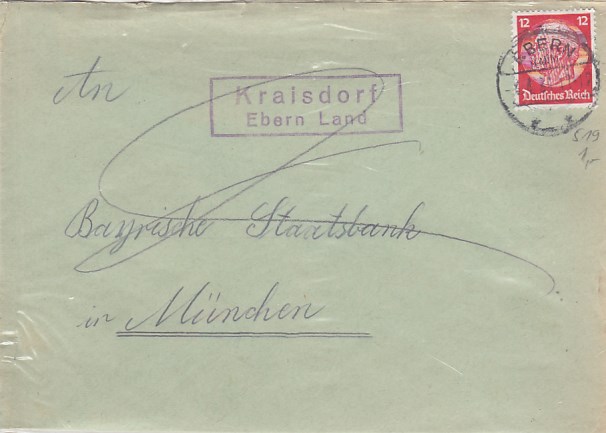 12 12
Deutsches Reich
EBERN
An
Kraisdorf
Ebern Land
519
Bayrische Staatsbank
in München